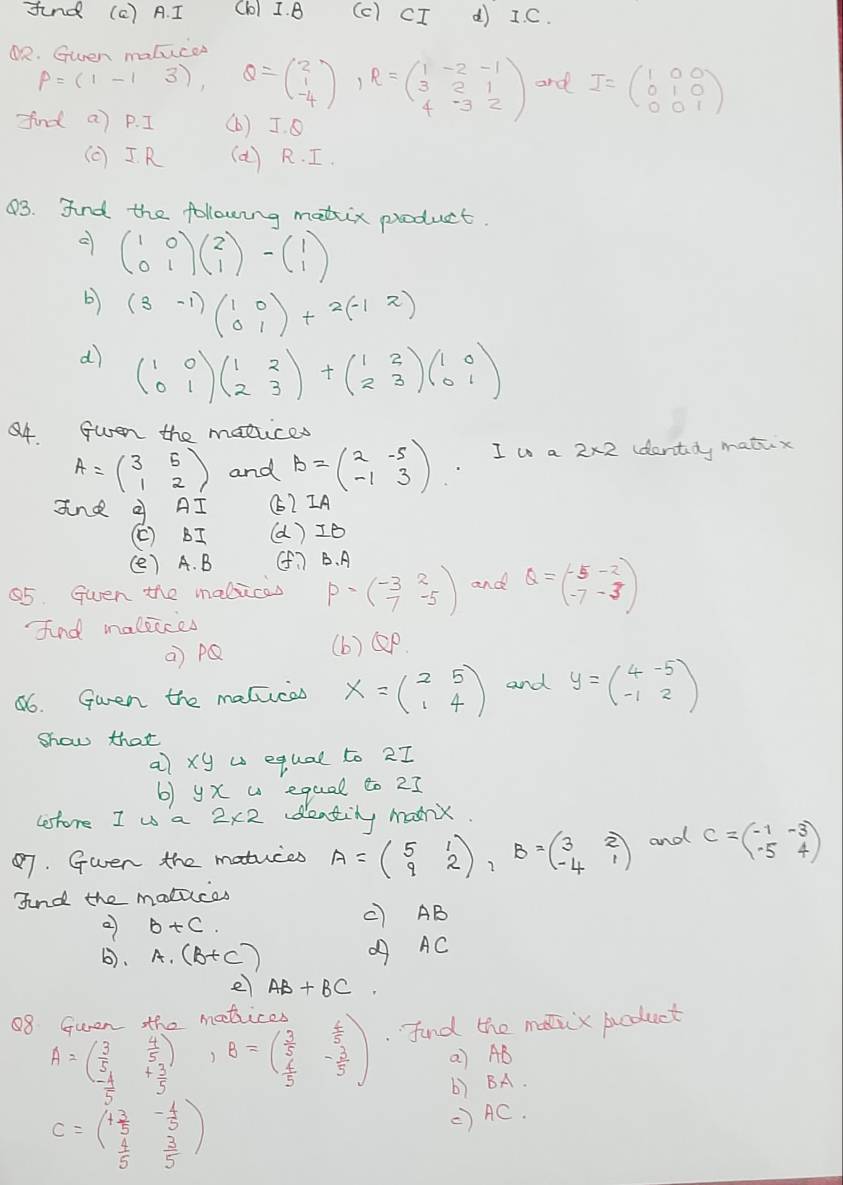 Find (a) A.I (b) I.B (c) CI d) I.C.
Q2. Given matrices
P = (1 -1 3), Q = (2 1 -4), R = (1 -2 -1 3 2 1 4 -3 2) and I = (1 0 0 0 1 0 0 0 1)
Find a) P.I (b) I.Q
(c) I.R (d) R.I.
Q3. Find the following matrix product.
a) (1 0 0 1)(2 1) - (1 1)
b) (3 -1)(1 0 0 1) + 2(-1 2)
d) (1 0 0 1)(1 2 2 3) + (1 2 2 3)(1 0 0 1)
Q4. Given the matrices
A = (3 5 1 2) and B = (2 -5 -1 3). I is a 2x2 identity matrix
Find a) AI (b) IA
(c) BI (d) IB
(e) A.B (f) B.A
Q5. Given the matrices P = (-3 2 7 -5) and Q = (-5 -2 -7 -3)
Find matrices
a) PQ (b) QP.
Q6. Given the matrices X = (2 5 1 4) and y = (4 -5 -1 2)
Show that
a) xy is equal to 2I
b) yx is equal to 2I
where I is a 2x2 identity matrix.
Q7. Given the matrices A = (5 1 9 2), B = (3 2 -4 1) and C = (-1 -3 -5 4)
Find the matrices
a) B+C. c) AB
b). A.(B+C) d) AC
e) AB + BC.
Q8 Given the matrices
A = (3/5 4/5 -4/5 +3/5), B = (3/5 4/5 4/5 -3/5). Find the matrix product
a) AB
b) BA.
C = (+3/5 -4/5 4/5 3/5) c) AC.